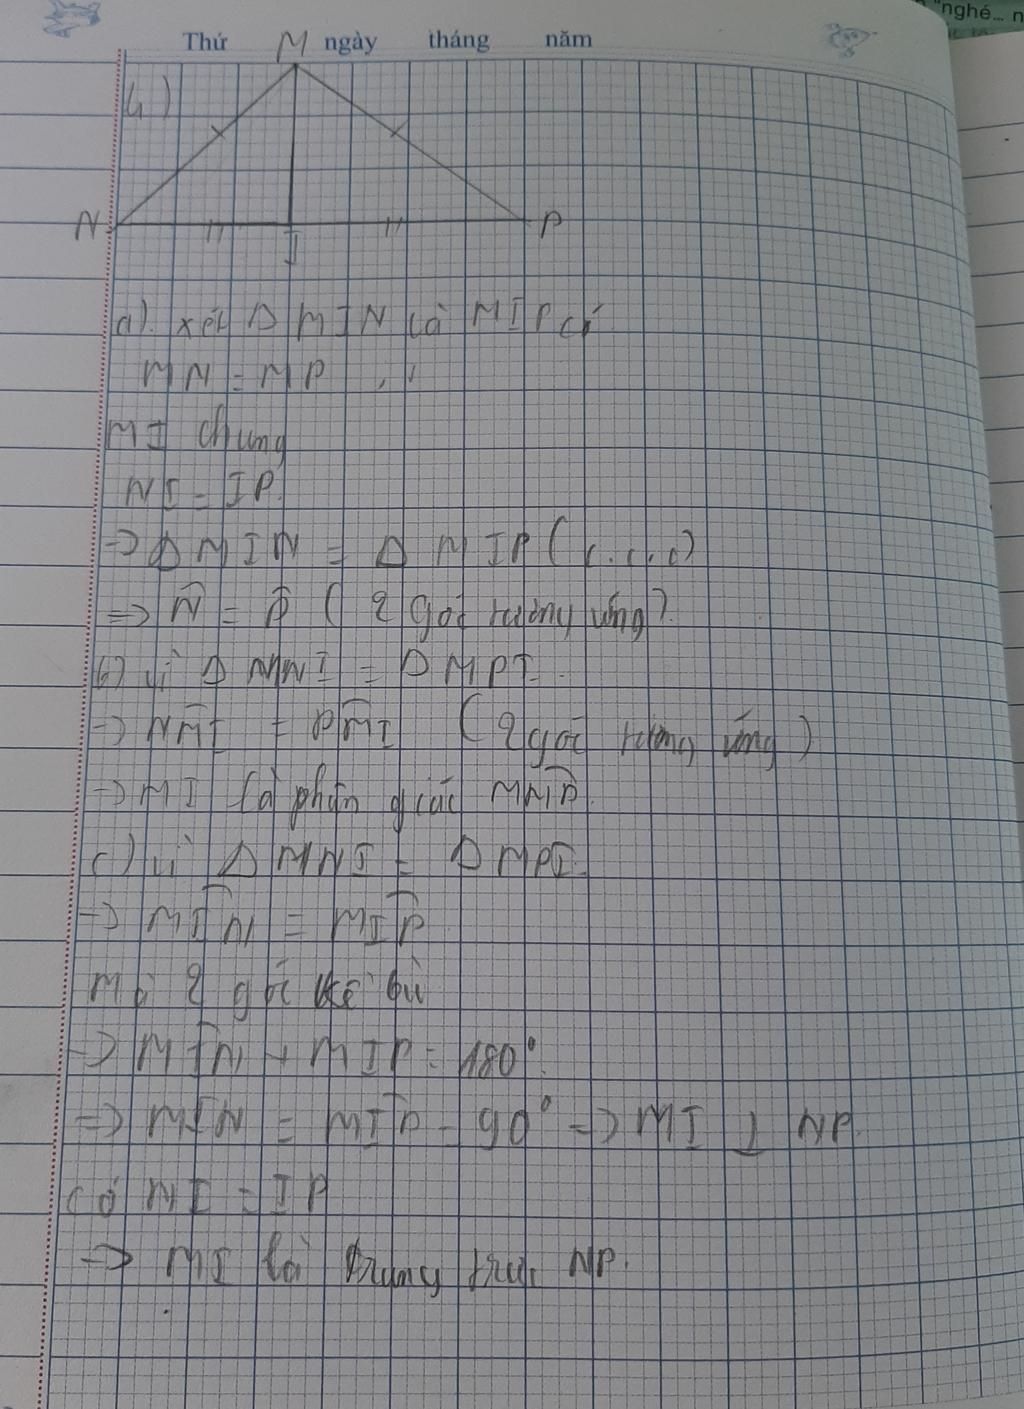 "nghé... n
Thứ ngày tháng năm
M
4)
N
I
P
a). xét Δ MIN và MIP có
MN = MP
MI chung
NI = IP.
=> Δ MIN = Δ MIP (c.c.c)
=> N̂ = P̂ ( 2 góc tương ứng)
b) vì Δ MNI = Δ MPI.
=> NM̂I = PM̂I ( 2 góc tương ứng )
=> MI là phân giác
c) vì Δ MNI = Δ MPI.
=> MÎN = MÎP
Mà 2 góc kề bù
=> MÎN + MÎP = 180°.
=> MÎN = MÎP = 90° => MI ⊥ NP.
có = IP
=> MI là trung trực NP.